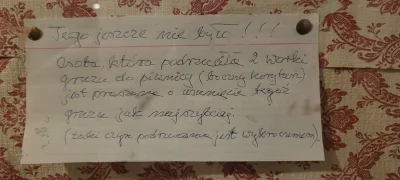 Tego jeszcze nie było !!!
Osoba która podrzuciła 2 worki
gruzu do piwnicy (boczny korytarz)
jest proszona o usunięcie tegoż
gruzu jak najszybciej.
(taki czyn podrzucania jest wykroczeniem).